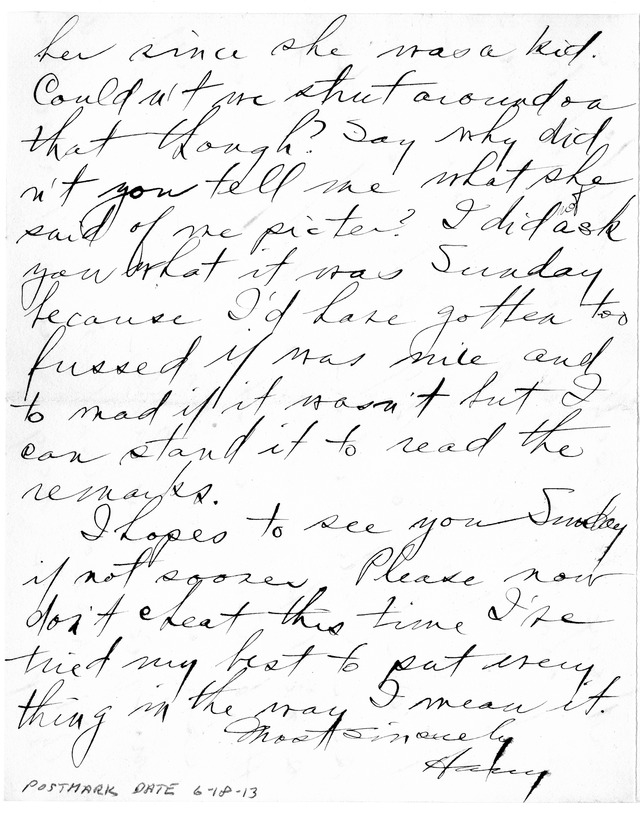 her since she was a kid.
Couldn't we strut around on
that though? Say why did
n't you tell me what she
said of me picter? I did not ask
you what it was Sunday
because I'd have gotten too
fussed if was nice and
to mad if it wasn't but I
can stand it to read the
remarks.
I hopes to see you Sunday
if not sooner. Please now
don't cheat this time I've
tried my best to put every
thing in the way I mean it.
Most sincerely
Harry
POSTMARK DATE 6-18-13